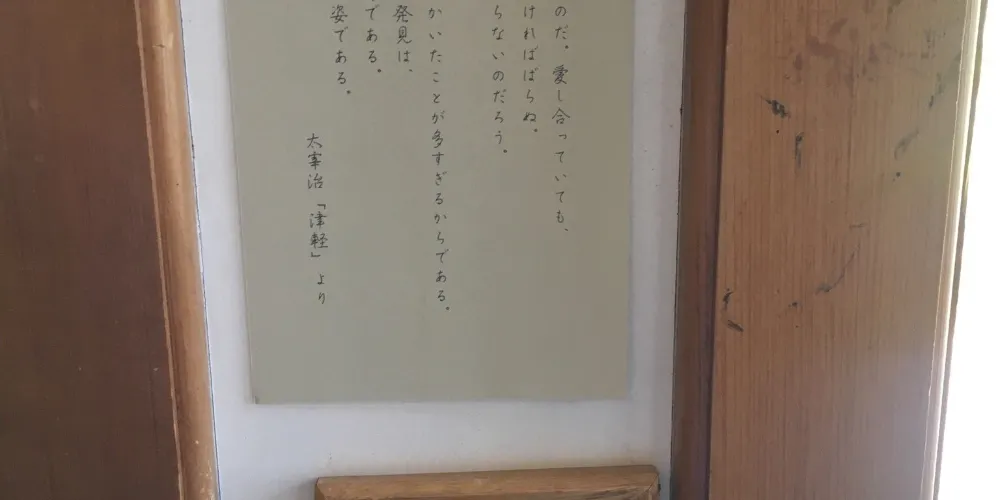 のだ。愛し合っていても、
ければばらぬ。
らないのだろう。
かいたことが多すぎるからである。
発見は、
である。
姿である。
太宰治「津軽」より